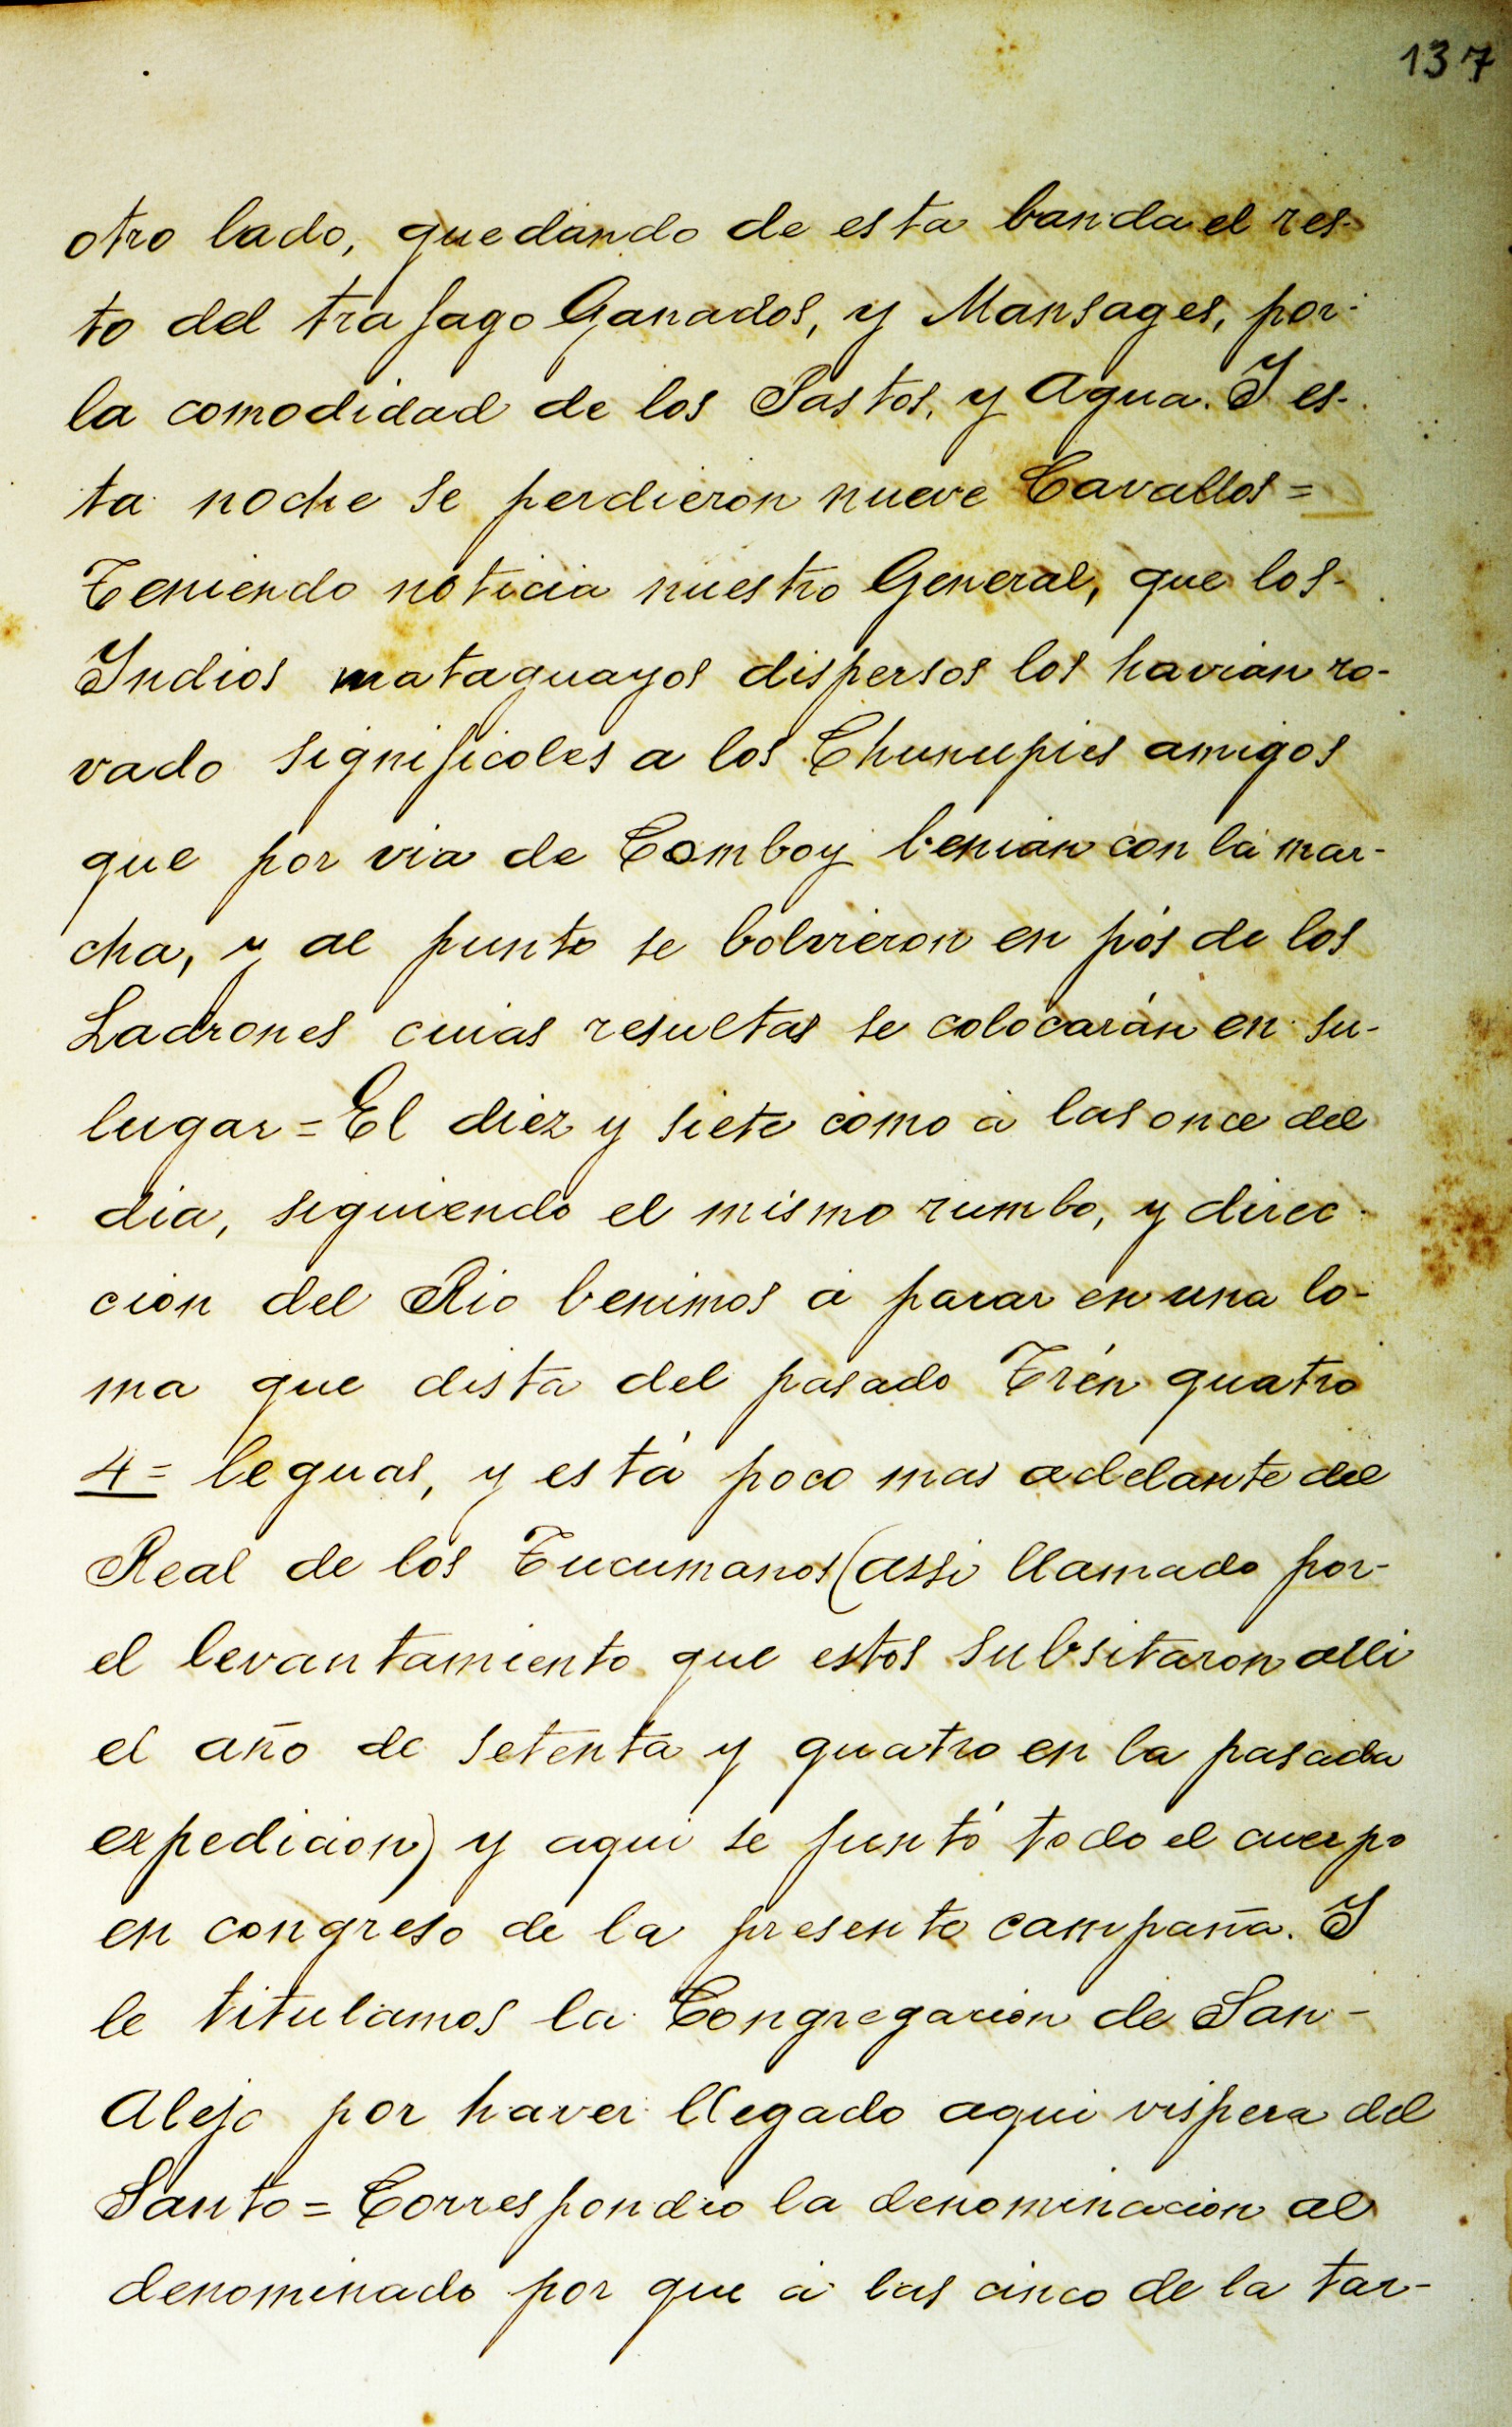 137
otro lado, quedando de esta banda el res-
to del trafago Ganados, y Mansages, por-
la comodidad de los Pastos, y Agua. Y es-
ta noche se perdieron nueve Cavallos =
Teniendo noticia nuestro General, que los-
Indios mataguayos dispersos los havian ro-
vado significoles a los Chunupies amigos
que por via de Comboy benian con la mar-
cha, y al punto se bolvieron en pós de los
Ladrones cuias resultas se colocarán en su-
lugar = El diez y siete como á las once del
dia, siguiendo el mismo rumbo, y direc-
cion del Rio benimos á parar en una lo-
ma que dista del pasado Trén quatro
4= leguas, y está poco mas adelante del
Real de los Tucumanos (assi llamado por-
el levantamiento que estos subsitaron alli
el año de setenta y quatro en la pasada
expedicion) y aqui se juntó todo el cuerpo
en congreso de la presente campaña. Y
le titulamos la Congregacion de San-
Alejo por haver llegado aqui vispera del
Santo = Correspondio la denominacion al
denominado por que á las cinco de la tar-